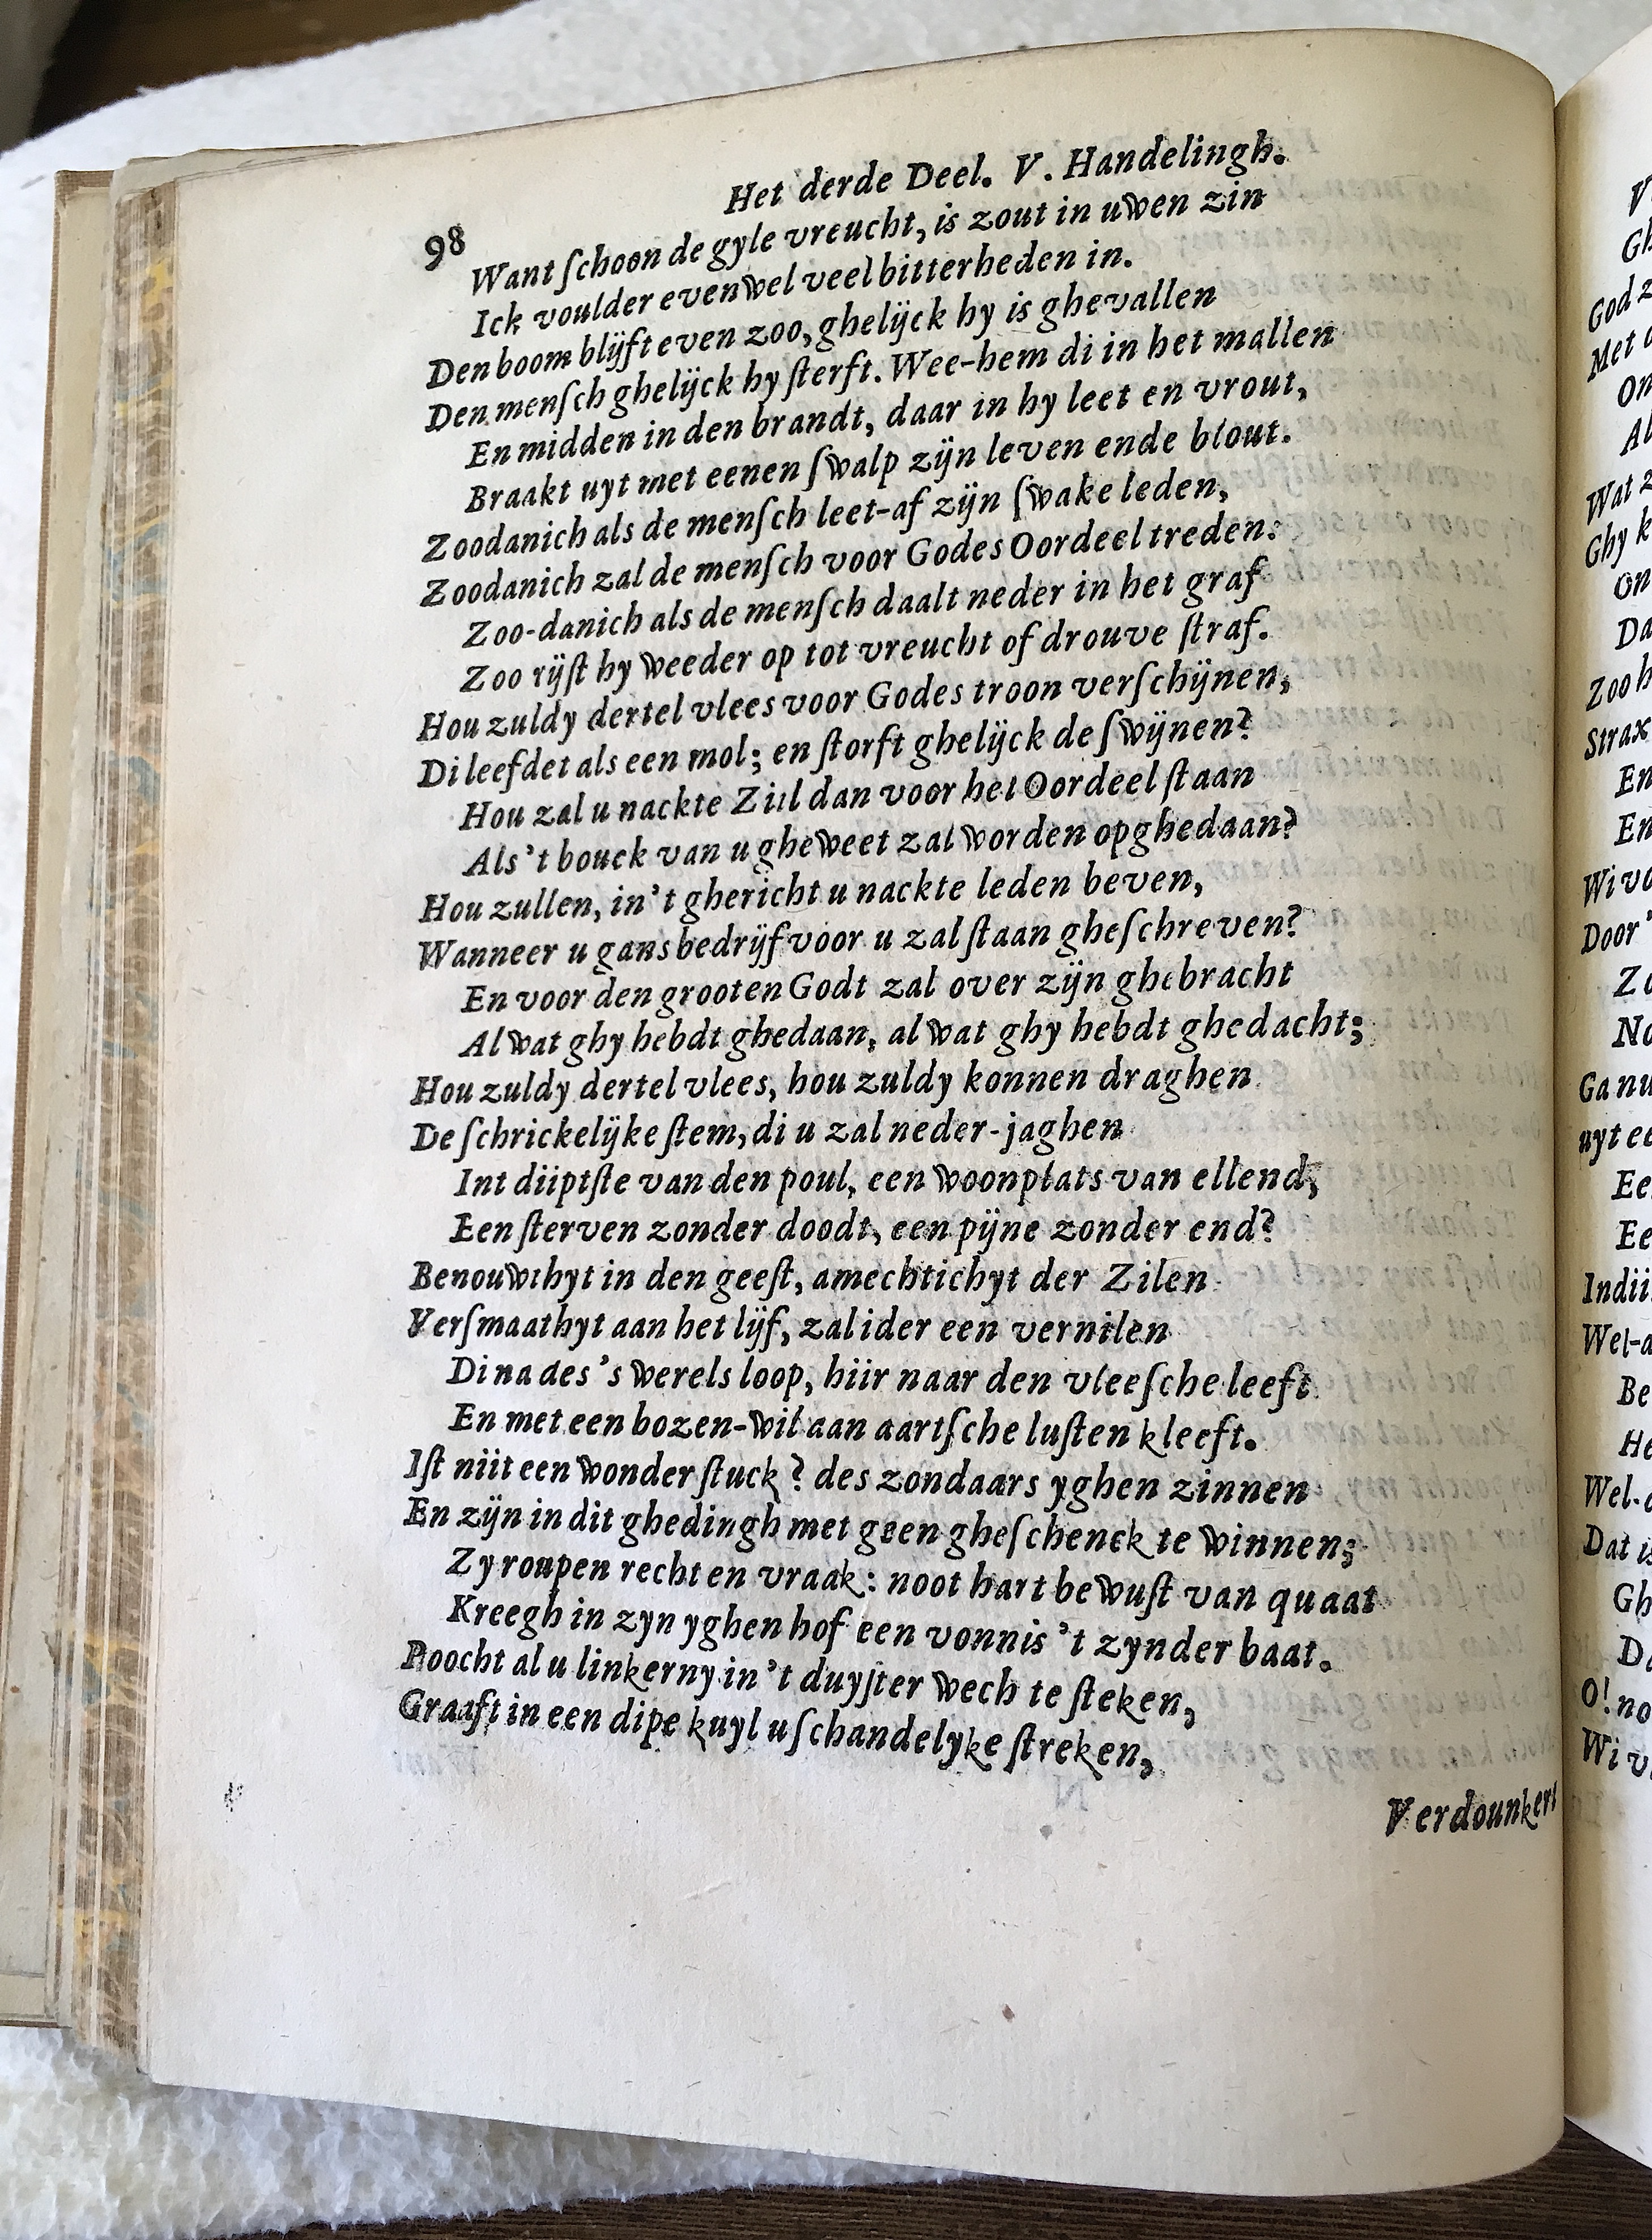 Het derde Deel. V. Handelingh.
98
Want ſchoon de gyle vreucht, is zout in uwen zin
Ick voulder evenwel veel bitterheden in.
Den boom blijft even zoo, ghelijck hy is ghevallen
Den menſch ghelijck hy ſterft. Wee-hem di in het mallen
En midden in den brandt, daar in hy leet en vrout,
Braakt uyt met eenen ſwalp zijn leven ende blout.
Zoodanich als de menſch leet-af zijn ſwake leden,
Zoodanich zal de menſch voor Godes Oordeel treden:
Zoo-danich als de menſch daalt neder in het graf
Zoo rijſt hy weeder op tot vreucht of drouve ſtraf.
Hou zuldy dertel vlees voor Godes troon verſchijnen,
Di leefdet als een mol; en ſtorft ghelijck de ſwijnen?
Hou zal u nackte Ziil dan voor het Oordeel ſtaan
Als 't bouck van u gheweet zal worden opghedaan?
Hou zullen, in 't ghericht u nackte leden beven,
Wanneer u gans bedrijf voor u zal ſtaan gheſchreven?
En voor den grooten Godt zal over zijn ghebracht
Al wat ghy hebdt ghedaan, al wat ghy hebdt ghedacht;
Hou zuldy dertel vlees, hou zuldy konnen draghen
De ſchrickelijke ſtem, di u zal neder-jaghen
Int diiptſte van den poul, een woonplats van ellend,
Een ſterven zonder doodt, een pijne zonder end?
Benouwthyt in den geeſt, amechtichyt der Zilen
Verſmaathyt aan het lijf, zal ider een vernilen
Di na des 's werels loop, hiir naar den vleeſche leeft
En met een bozen-wil aan aartſche luſten kleeft.
Iſt niit een wonder ſtuck? des zondaars yghen zinnen
En zijn in dit ghedingh met geen gheſchenck te winnen;
Zy roupen recht en vraak: noot hart bewuſt van quaat
Kreegh in zyn yghen hof een vonnis 't zynder baat.
Poocht al u linkerny in 't duyſter wech te ſteken,
Graaft in een dipe kuyl u ſchandelyke ſtreken,
Verdounkert
V
Gh
God z
Met
On
Al
Wat z
Ghy k
On
Da
Zoo h
Strax
En
En
Wi vo
Door
Zo
No
Ga nu
uyt ee
Ee
Ee
Indii
Wel-a
Be
He
Wel-
Dat is
Gh
Da
O! no
Wi v